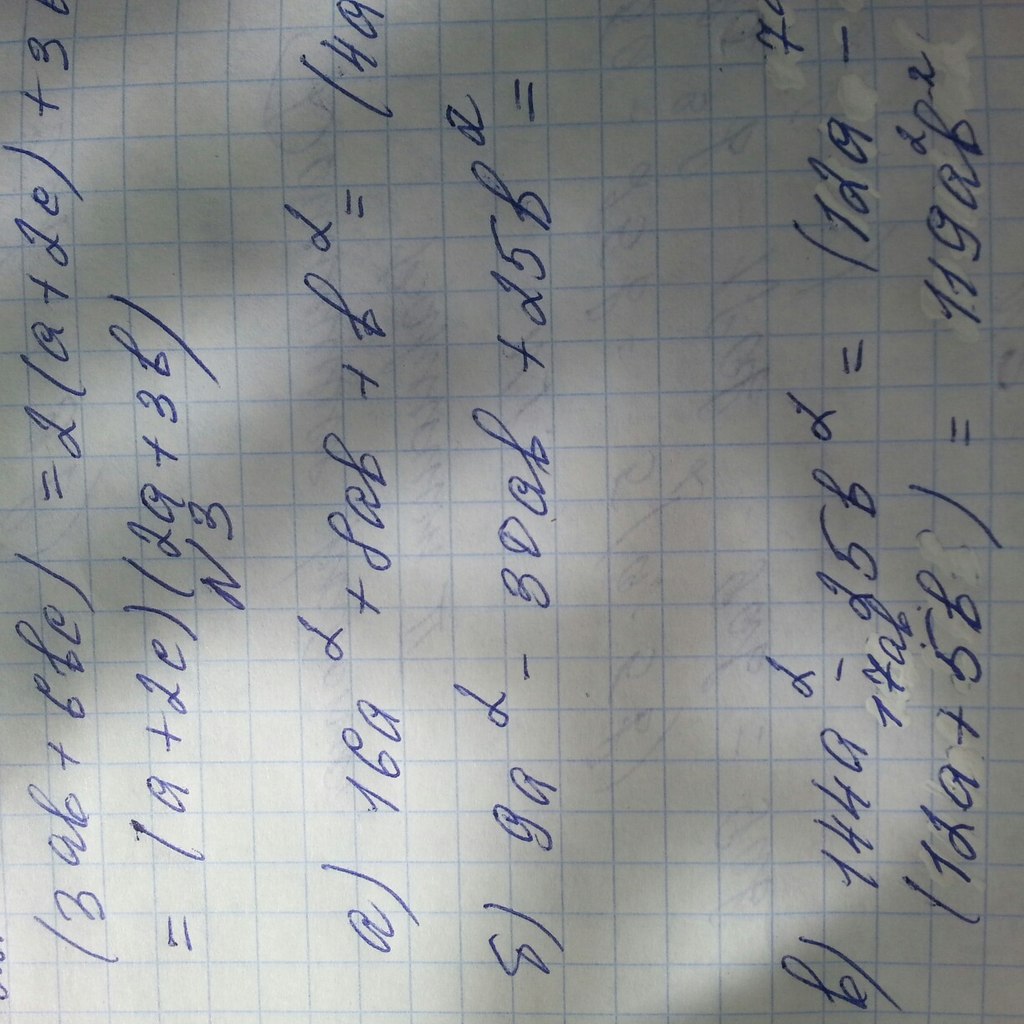 (3ab + 6bc) = 2(a + 2c) + 3
= (a + 2c)(2a + 3b)
N3
а) 16a² + 8ab + b² = (4a
б) 9a² - 30ab + 25b² =
в) 144a² - 25b² = (12a -
17ab
(12a + 5b) = 119ab²